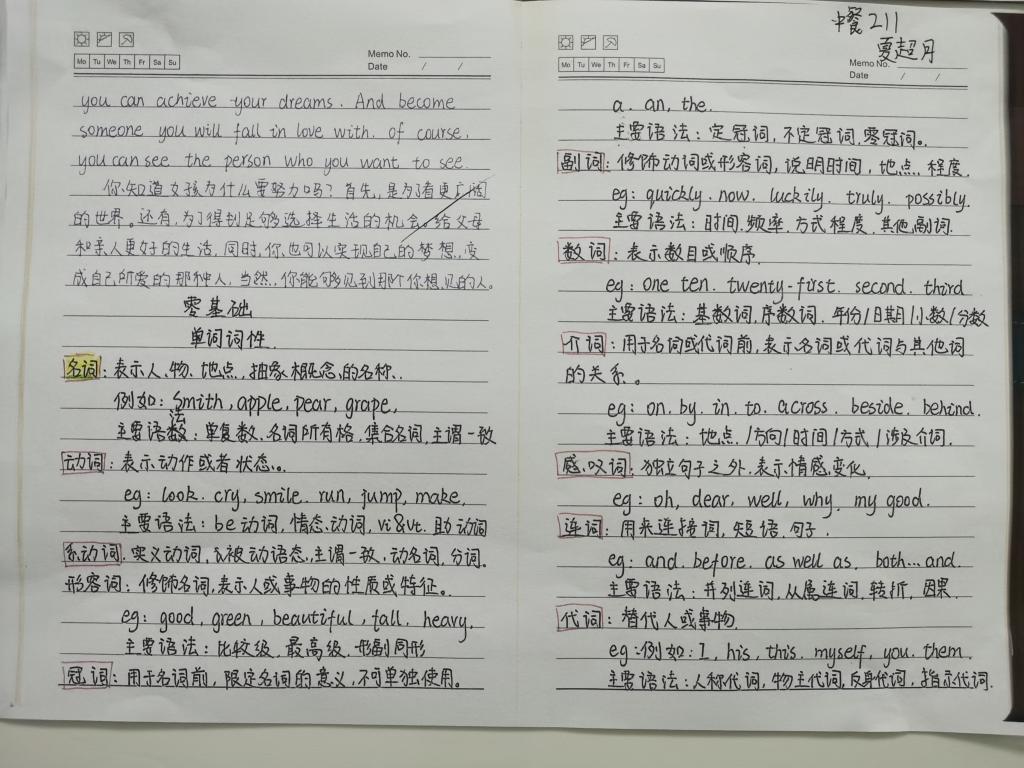 Mo Tu We Th Fr Sa Su
Memo No.
Date / /
you can achieve your dreams. And become
someone you will fall in love with. of course.
you can see the person who you want to see.
你知道女孩为什么要努力吗? 首先,是为了看更广阔
的世界。还有,为了得到足够选择生活的机会。给父母
和亲人更好的生活,同时,你也可以实现自己的梦想,变
成自己所爱的那种人,当然,你能够见到那个你想见的人。
零基础
单词词性
名词:表示人、物、地点,抽象概念,的名称.
例如: Smith, apple, pear, grape,
主要语法:单复数、名词所有格,集合名词,主谓一致
动词:表示动作或者状态。
eg: look. cry, smile. run, jump, make,
主要语法:be动词,情态动词,vi&vt. 助动词
系动词,实义动词,被动语态,主谓一致,动名词,分词。
形容词:修饰名词,表示人或事物的性质或特征。
eg: good, green, beautiful, tall, heavy,
主要语法:比较级、最高级、形副同形
冠词:用于名词前,限定名词的意义,不可单独使用。
中餐211
夏超月
Mo Tu We Th Fr Sa Su
Memo No.
Date / /
a. an, the.
主要语法:定冠词,不定冠词,零冠词。
副词:修饰动词或形容词,说明时间,地点,程度.
eg: quickly. now. luckily, truly. possibly.
主要语法:时间,频率,方式程度,其他副词.
数词:表示数目或顺序.
eg: one ten. twenty-first. second. third
主要语法:基数词,序数词. 年份/日期/小数/分数
介词:用于名词或代词前,表示名词或代词与其他词
的关系。
eg: on. by. in. to. across. beside. behind.
主要语法:地点./方向/时间/方式/涉及介词.
感叹词:独立句子之外,表示情感变化,
eg: oh, dear, well, why. my good.
连词:用来连接词,短语,句子.
eg: and. before. as well as, both...and.
主要语法:并列连词,从属连词,转折,因果.
代词:替代人或事物.
eg:例如: I, his, this. myself, you. them.
主要语法:人称代词,物主代词,反身代词,指示代词.